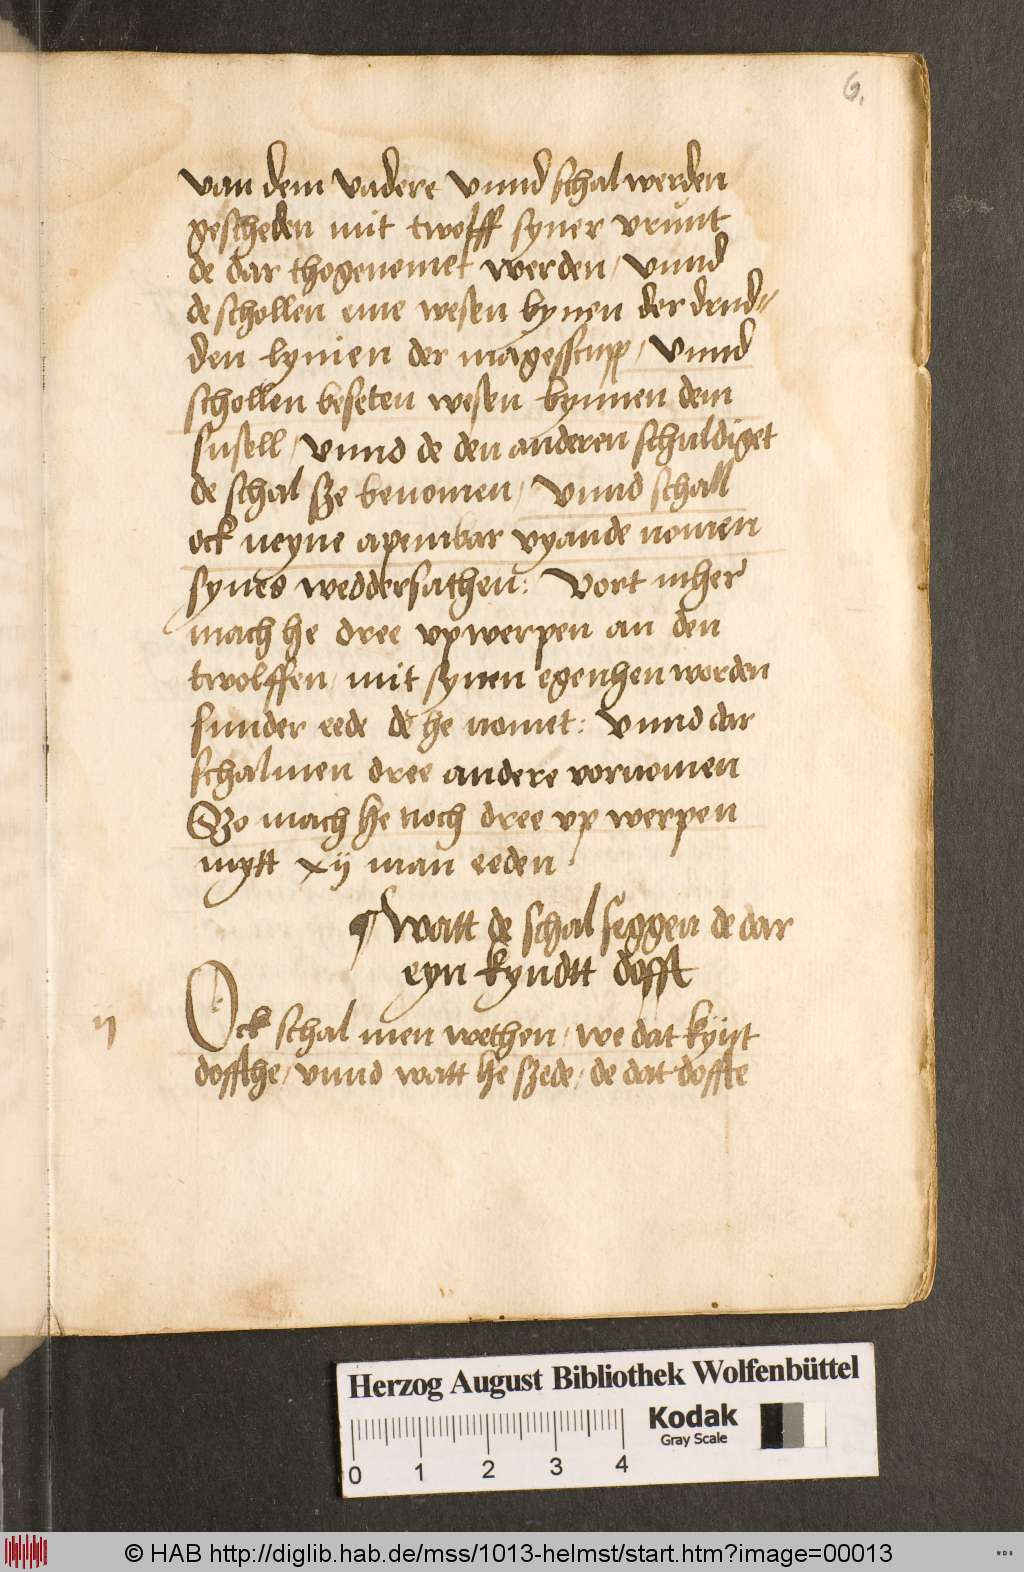 6.
van dem vadere vnnd schal werden
gescheden mit twolff syner vrunt
de dar thogenomet werden / vnnd
de schollen eine wesen bynen der drud=
den lynien der magesscupp / vnnd
schollen beseten wesen bynnen dem
susell / vnnd de den anderen schuldiget
de schal sze benomen / vnnd schall
ock neyne apembar vyande nomen
synes weddersathen: Vort mher
mach he dree vpwerpen an den
twolffen / mit synen egenhen worden
sunder eede de he nomet: vnnd dar
schalmen dree andere vornomen
Szo mach he noch dree vp werpen
mytt xij man eeden
¶ Watt de schal seggen de dar
eyn kyndtt dofft
ij
Ock schal men wethen / we dat kynt
doffthe / vnnd watt he szede / de dat doffte
Herzog August Bibliothek Wolfenbüttel
Kodak
Gray Scale
0 1 2 3 4
© HAB http://diglib.hab.de/mss/1013-helmst/start.htm?image=00013